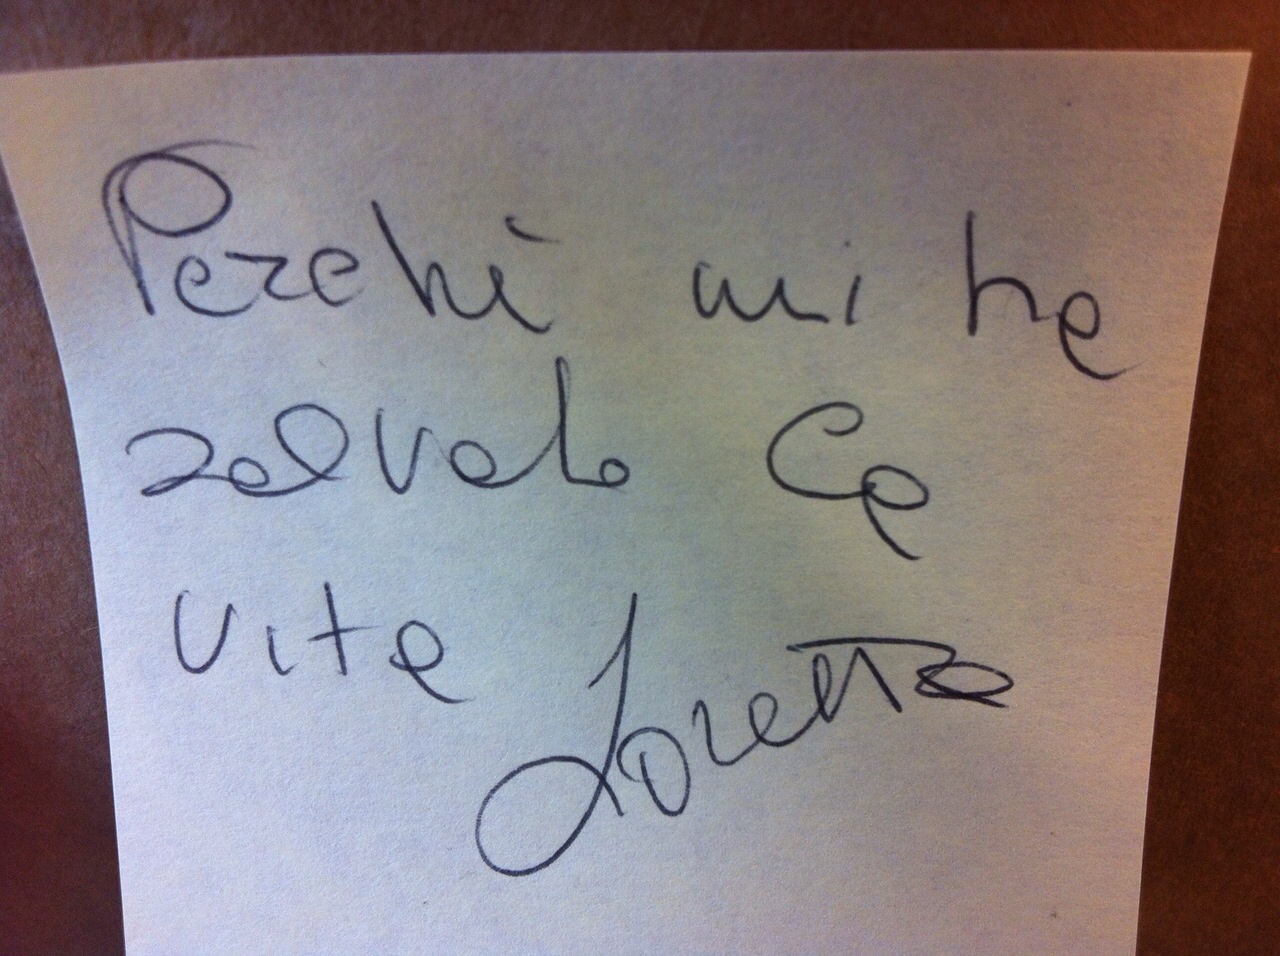 Perchè mi ha
salvato la
vita
Loretta